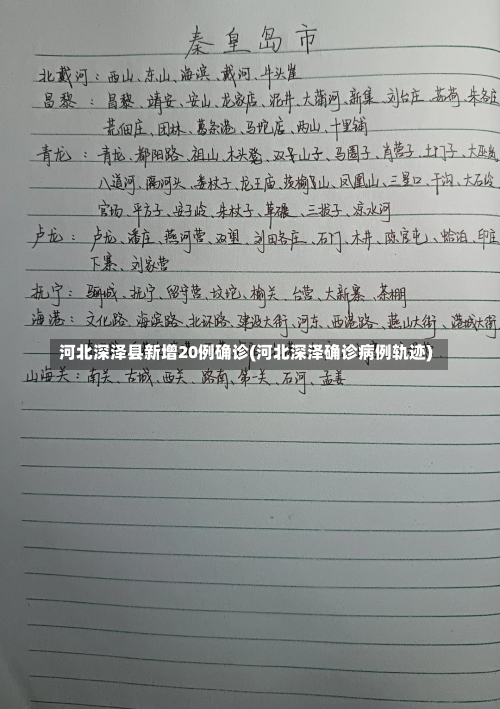 秦皇岛市
北戴河：西山、东山、海滨、戴河、牛头崖
昌黎：昌黎、靖安、安山、龙家店、泥井、大蒲河、新集、刘台庄、茹荷、朱各庄
荒佃庄、团林、葛条港、马坨店、两山、十里铺
青龙：青龙、都阳路、祖山、木头凳、双山子、马圈子、肖营子、土门子、大巫岚
八道河、隔河头、娄杖子、龙王庙、茨榆山、凤凰山、三星口、干沟、大石岭
官场、平方子、安子岭、朱杖子、草碾、三拨子、凉水河
卢龙：卢龙、潘庄、燕河营、双望、刘田各庄、石门、木井、陈官屯、蛤泊、印庄
下寨、刘家营
抚宁：骊城、抚宁、留守营、坟坨、榆关、台营、大新寨、茶棚
海港：文化路、海滨路、北环路、建设大街、河东、西港路、燕山大街、港城大街
河北深泽县新增20例确诊(河北深泽确诊病例轨迹)
山海关：南关、古城、西关、路南、第一关、石河、孟姜